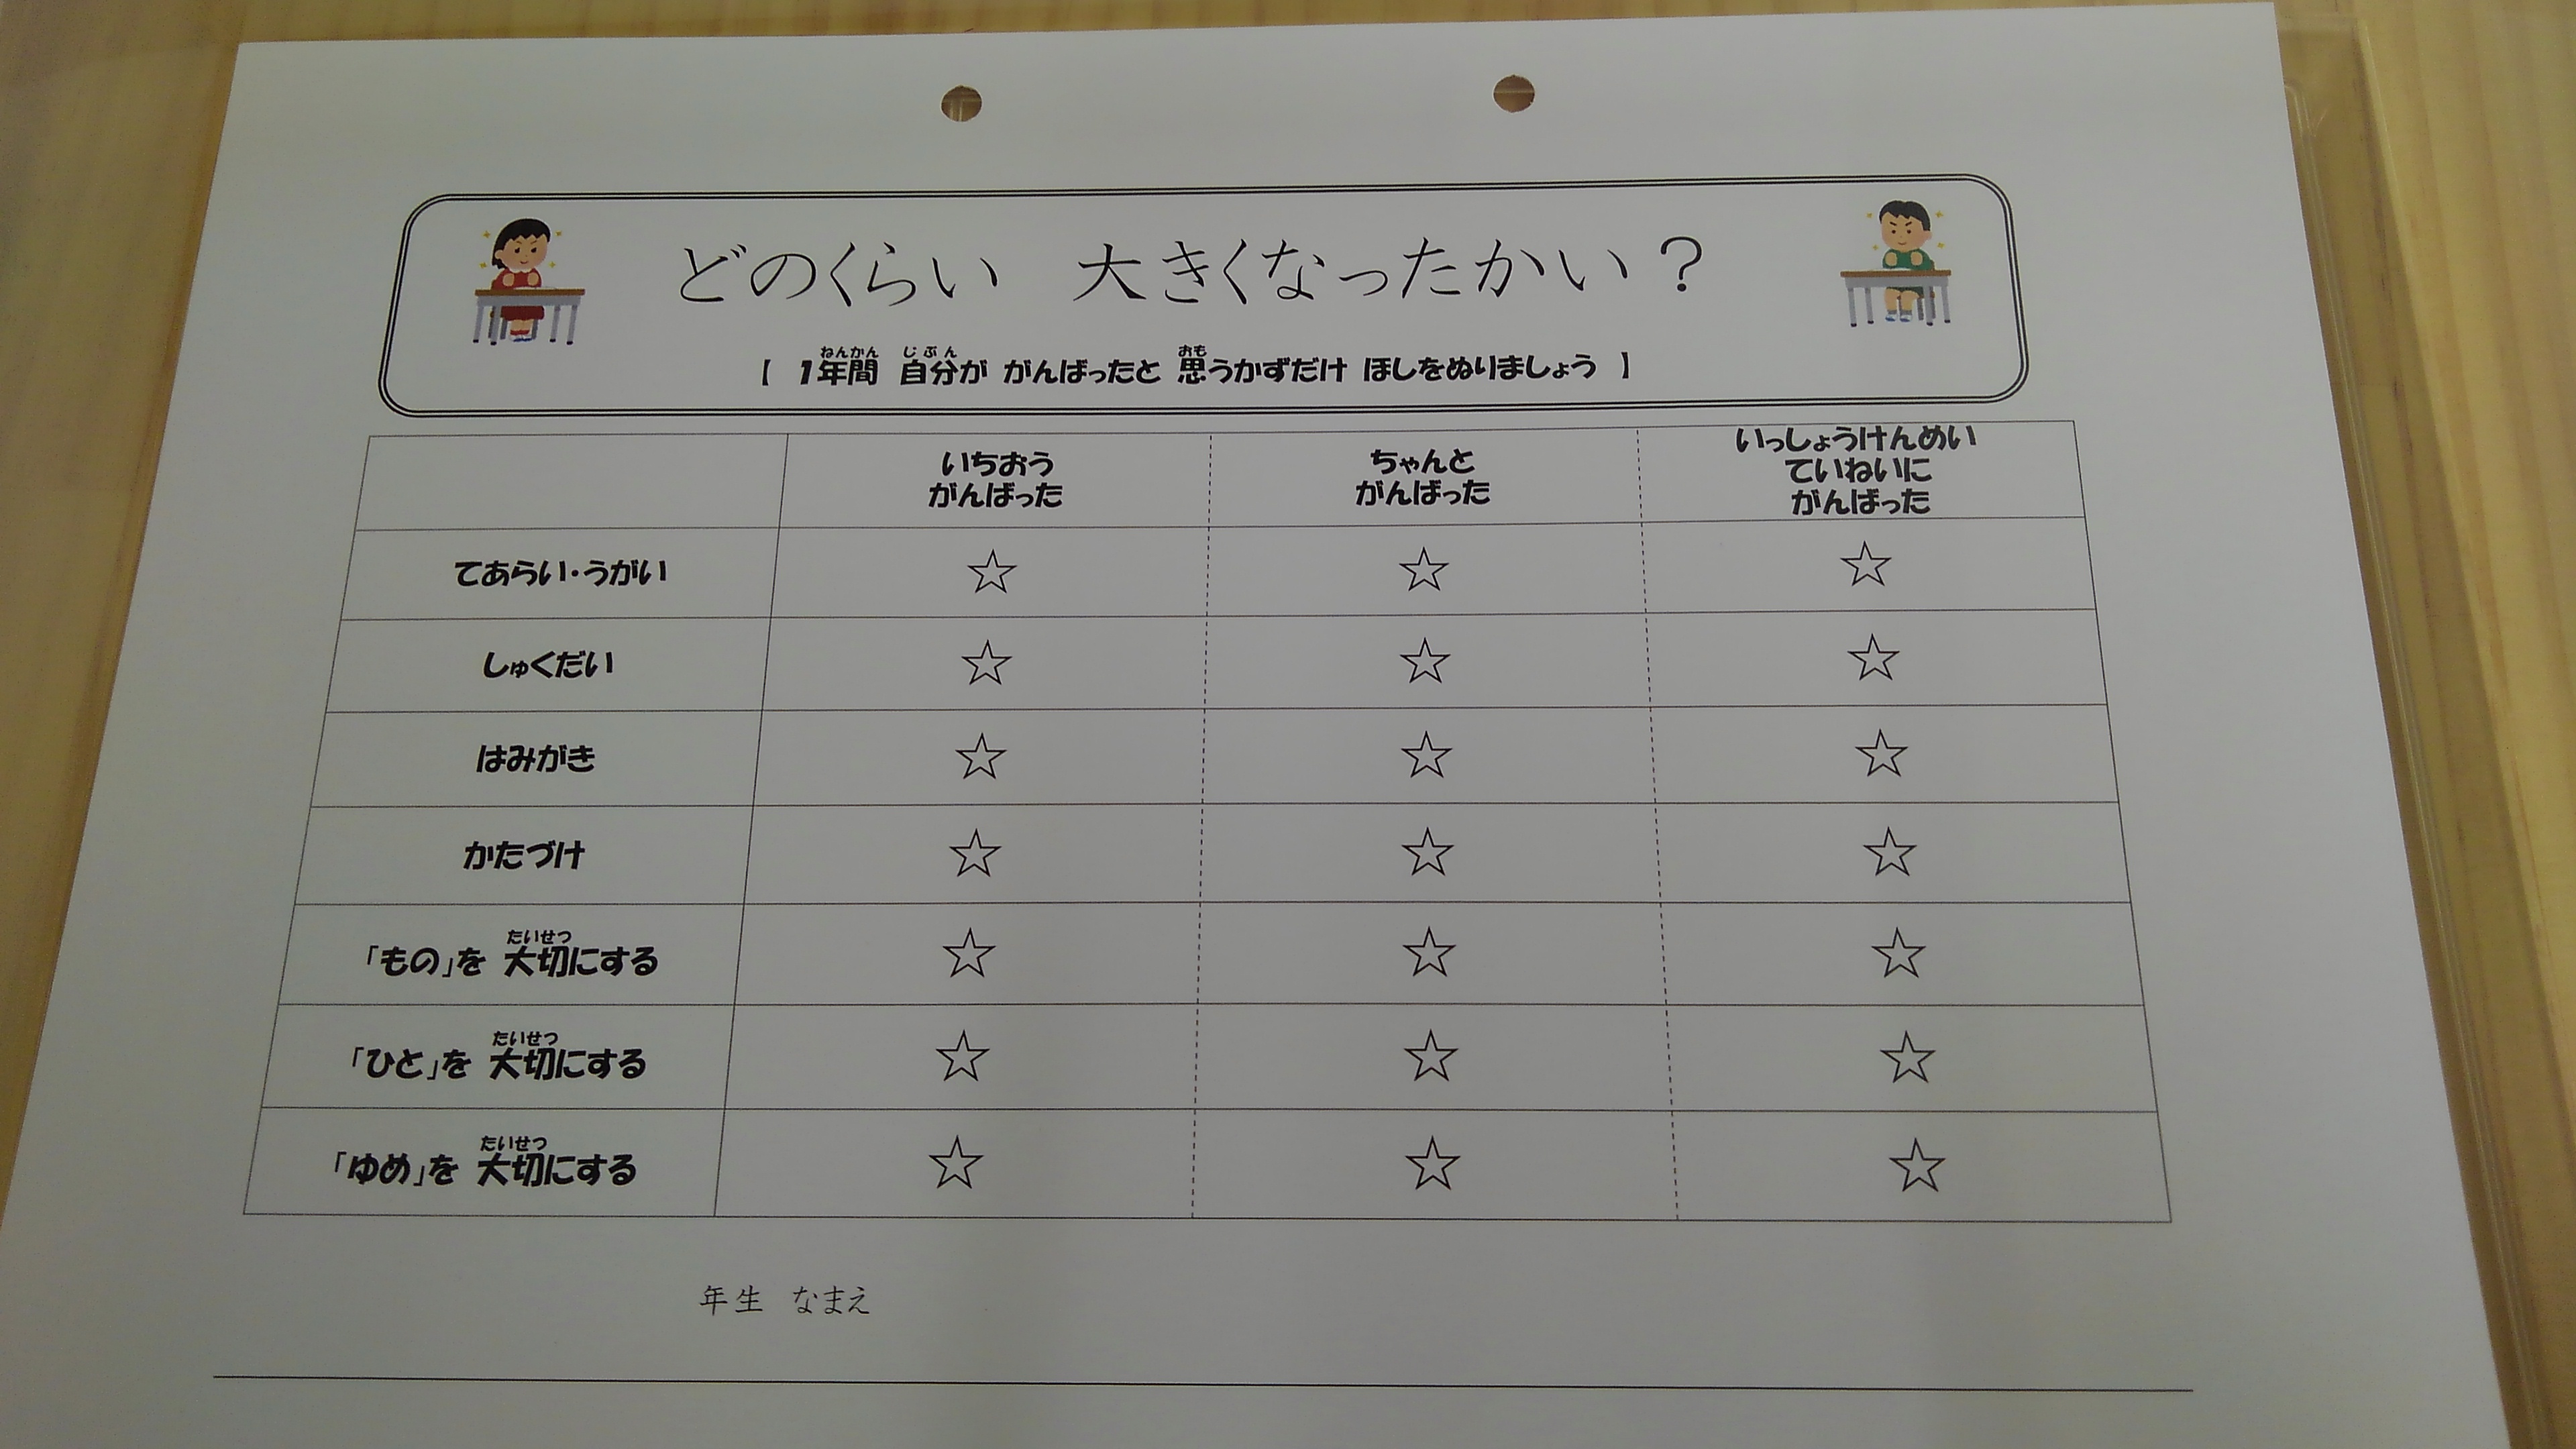 どのくらい　大きくなったかい？
ねんかん じぶん おも
【 1年間 自分が がんばったと 思うかずだけ ほしをぬりましょう 】
いちおう
がんばった
ちゃんと
がんばった
いっしょうけんめい
ていねいに
がんばった
てあらい・うがい ☆ ☆ ☆
しゅくだい ☆ ☆ ☆
はみがき ☆ ☆ ☆
かたづけ ☆ ☆ ☆
たいせつ
「もの」を 大切にする ☆ ☆ ☆
たいせつ
「ひと」を 大切にする ☆ ☆ ☆
たいせつ
「ゆめ」を 大切にする ☆ ☆ ☆
年生　なまえ